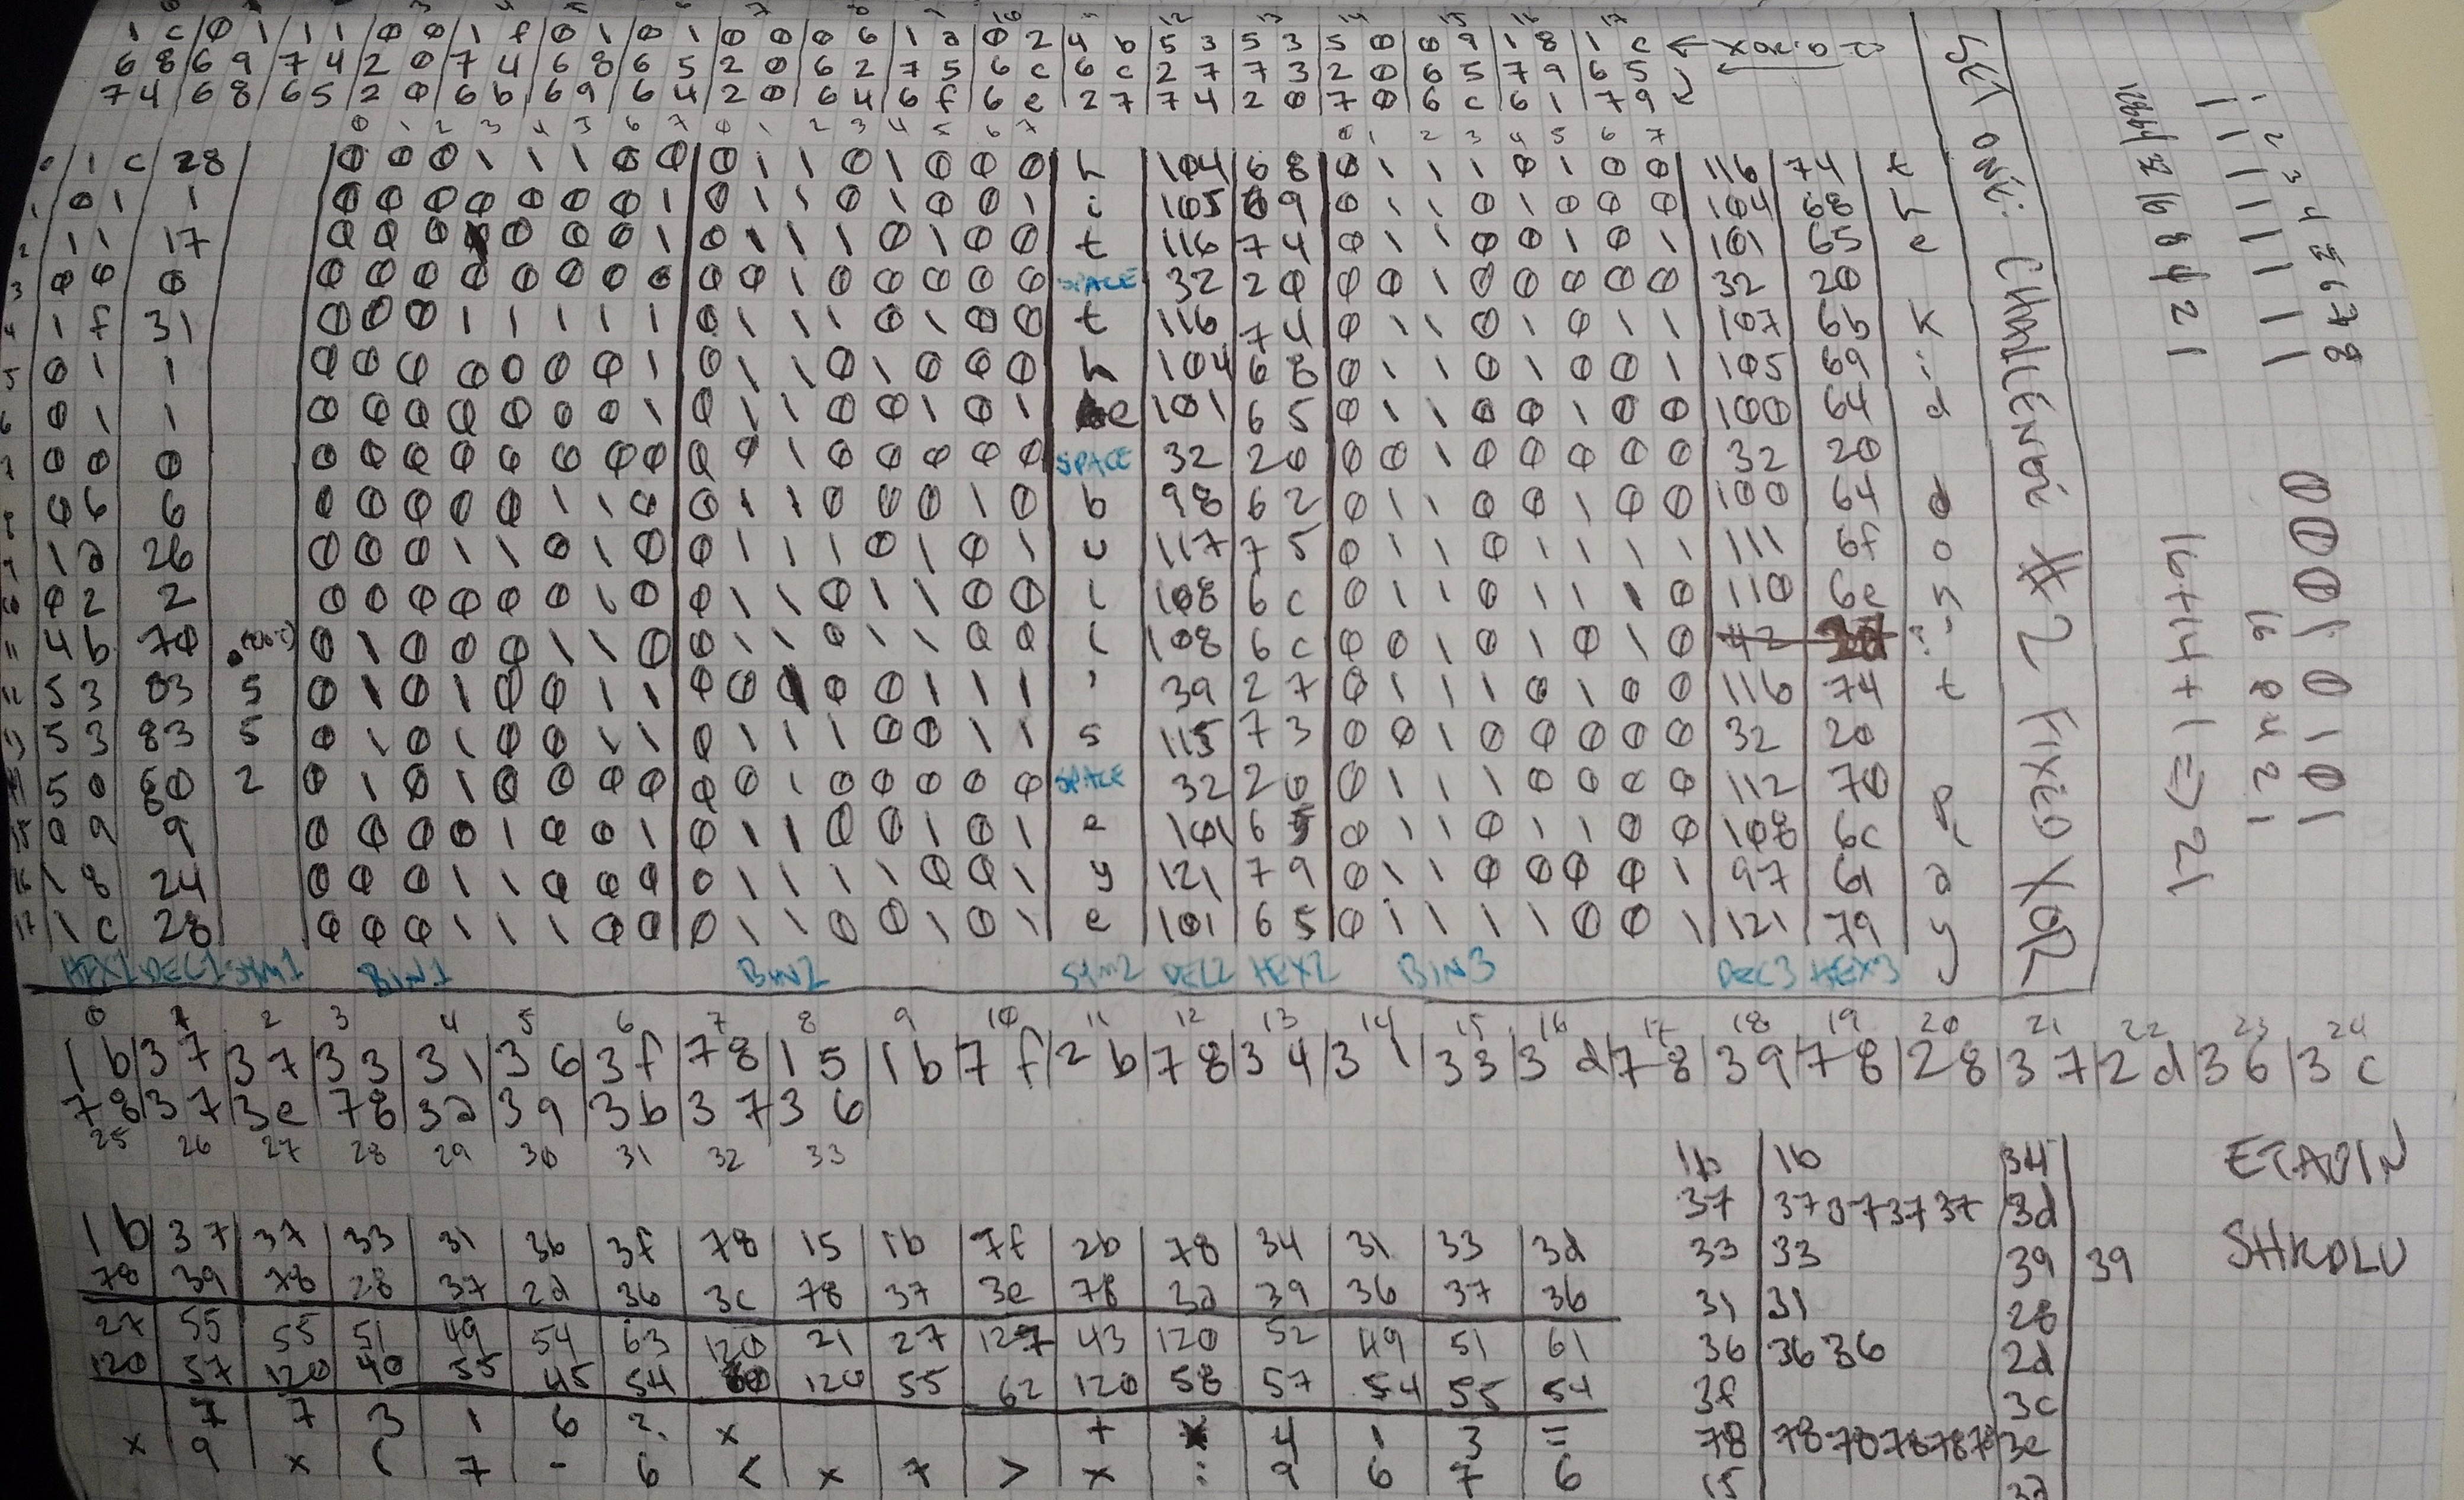 0 1 2 3 4 5 6 7 8 9 10 11 12 13 14 15 16 17
1 c 0 1 1 1 0 0 1 f 0 1 0 1 0 0 0 6 1 a 0 2 4 b 5 3 5 3 5 0 0 9 1 8 1 c
6 8 6 9 7 4 2 0 7 4 6 8 6 5 2 0 6 2 7 5 6 c 6 c 2 7 7 3 2 0 6 5 7 9 6 5
7 4 6 8 6 5 2 0 6 b 6 9 6 4 2 0 6 4 6 f 6 e 2 7 7 4 2 0 7 0 6 c 6 1 7 9
0 1 2 3 4 5 6 7 0 1 2 3 4 5 6 7 0 1 2 3 4 5 6 7
0 1 c 28 0 0 0 1 1 1 0 0 0 1 1 0 1 0 0 0 h 104 68 0 1 1 1 0 1 0 0 116 74 t
1 0 1 1 0 0 0 0 0 0 0 1 0 1 1 0 1 0 0 1 i 105 69 0 1 1 0 1 0 0 0 104 68 h
2 1 1 17 0 0 0 1 0 0 0 1 0 1 1 1 0 1 0 0 t 116 74 0 1 1 0 0 1 0 1 101 65 e
3 0 0 0 0 0 0 0 0 0 0 0 0 0 1 0 0 0 0 0 SPACE 32 20 0 0 1 0 0 0 0 0 32 20
4 1 f 31 0 0 0 1 1 1 1 1 0 1 1 1 0 1 0 0 t 116 74 0 1 1 0 1 0 1 1 107 6b k
5 0 1 1 0 0 0 0 0 0 0 1 0 1 1 0 1 0 0 0 h 104 68 0 1 1 0 1 0 0 1 105 69 i
6 0 1 1 0 0 0 0 0 0 0 1 0 1 1 0 0 1 0 1 e 101 65 0 1 1 0 0 1 0 0 100 64 d
7 0 0 0 0 0 0 0 0 0 0 0 0 0 1 0 0 0 0 0 SPACE 32 20 0 0 1 0 0 0 0 0 32 20
8 0 6 6 0 0 0 0 0 1 1 0 0 1 1 0 0 0 1 0 b 98 62 0 1 1 0 0 1 0 0 100 64 d
9 1 a 26 0 0 0 1 1 0 1 0 0 1 1 1 0 1 0 1 u 117 75 0 1 1 0 1 1 1 1 111 6f o
10 0 2 2 0 0 0 0 0 0 1 0 0 1 1 0 1 1 0 0 l 108 6c 0 1 1 0 1 1 1 0 110 6e n
11 4 b 70 0 1 0 0 0 1 1 0 0 1 1 0 1 1 0 0 l 108 6c 0 0 1 0 1 0 1 0 42
12 5 3 83 5 0 1 0 1 0 0 1 1 0 0 1 0 0 1 1 1 ' 39 27 0 1 1 1 0 1 0 0 116 74 t
13 5 3 83 5 0 1 0 1 0 0 1 1 0 1 1 1 0 0 1 1 s 115 73 0 0 1 0 0 0 0 0 32 20
14 5 0 80 2 0 1 0 1 0 0 0 0 0 0 1 0 0 0 0 0 SPACE 32 20 0 1 1 1 0 0 0 0 112 70 p
15 0 9 9 0 0 0 0 1 0 0 1 0 1 1 0 0 1 0 1 e 101 65 0 1 1 0 1 1 0 0 108 6c l
16 1 8 24 0 0 0 1 1 0 0 0 0 1 1 1 1 0 0 1 y 121 79 0 1 1 0 0 0 0 1 97 61 a
17 1 c 28 0 0 0 1 1 1 0 0 0 1 1 0 0 1 0 1 e 101 65 0 1 1 1 1 0 0 1 121 79 y
HEX1 DEC1 SYM1 BIN1 BIN2 SYM2 DEC2 HEX2 BIN3 DEC3 HEX3
#2 FIXED XOR
12 => 1+1+4+4+16
1 2 4 8 16
1 0 1 0 1 0 0 0 0
1 1 1 1 1 1 1 1
1 2 3 4 5 6 7 8
0 1 2 3 4 5 6 7 8 9 10 11 12 13 14 15 16 17 18 19 20 21 22 23 24
1b 37 37 33 31 36 3f 78 15 1b 7f 2b 78 34 31 33 3d 78 39 78 28 37 2d 36 3c
78 37 3e 78 3a 39 3b 37 36
25 26 27 28 29 30 31 32 33
1b 37 37 33 31 36 3f 78 15 1b 7f 2b 78 34 31 33 3d
78 39 78 28 37 2d 36 3c 78 37 3e 78 3a 39 36 37 36
27 55 55 51 49 54 63 120 21 27 127 43 120 52 49 51 61
120 57 120 40 55 45 54 60 120 55 62 120 58 57 54 55 54
7 7 3 1 6 ? x + x 4 1 3 =
x 9 x ( 7 - 6 < x 7 > x : 9 6 7 6
1b 1b 34
37 37 37 37 37 3d
33 33 39 39
31 31 28
36 36 36 2d
3f 3c
78 78 78 78 78 3e
15 3a
ETAOIN
SHRDLU